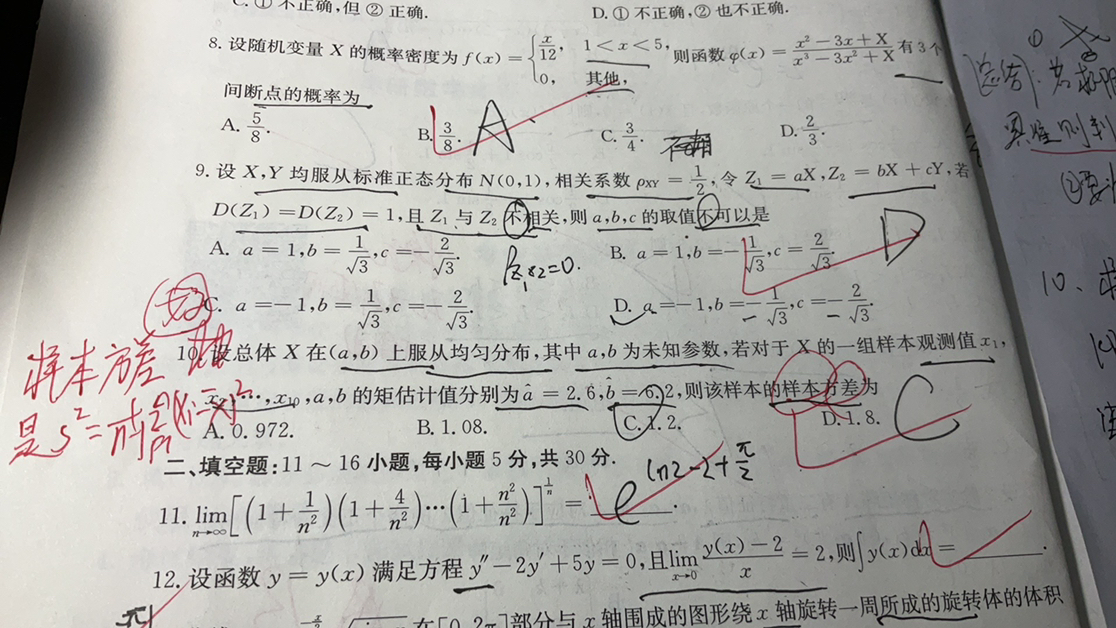 C. ① 不正确,但 ② 正确.
D. ① 不正确,② 也不正确.
8. 设随机变量 X 的概率密度为 f(x) = { x/12, 1 < x < 5, 0, 其他, 则函数 φ(x) = (x² − 3x + X)/(x³ − 3x² + X) 有 3 个
间断点的概率为
A. 5/8.
B. 3/8.
A
C. 3/4.
D. 2/3.
9. 设 X,Y 均服从标准正态分布 N(0,1), 相关系数 ρXY = 1/2, 令 Z₁ = aX, Z₂ = bX + cY, 若
D(Z₁) = D(Z₂) = 1, 且 Z₁ 与 Z₂ 不相关, 则 a,b,c 的取值不可以是
D
A. a = 1, b = 1/√3, c = −2/√3.
B. a = 1, b = −1/√3, c = 2/√3.
C. a = −1, b = 1/√3, c = −2/√3.
D. a = −1, b = −1/√3, c = −2/√3.
10. 设总体 X 在 (a,b) 上服从均匀分布, 其中 a,b 为未知参数, 若对于 X 的一组样本观测值 x₁,
x₂, ⋯, x₁₀, a,b 的矩估计值分别为 â = 2.6, b̂ = 6.2, 则该样本的样本方差为
样本方差
是 s² =
A. 0.972.
B. 1.08.
C. 1.2.
D. 1.8.
C
二、填空题: 11 ～ 16 小题, 每小题 5 分, 共 30 分.
11. lim n→∞ [(1 + 1/n²)(1 + 4/n²)⋯(1 + n²/n²)]^(1/n) = ______.
e^(ln2−2+π/2)
12. 设函数 y = y(x) 满足方程 y″ − 2y′ + 5y = 0, 且 lim x→0 (y(x) − 2)/x = 2, 则 ∫ y(x)dx = ______.
在 [0, 2π] 部分与 x 轴围成的图形绕 x 轴旋转一周所成的旋转体的体积
10、